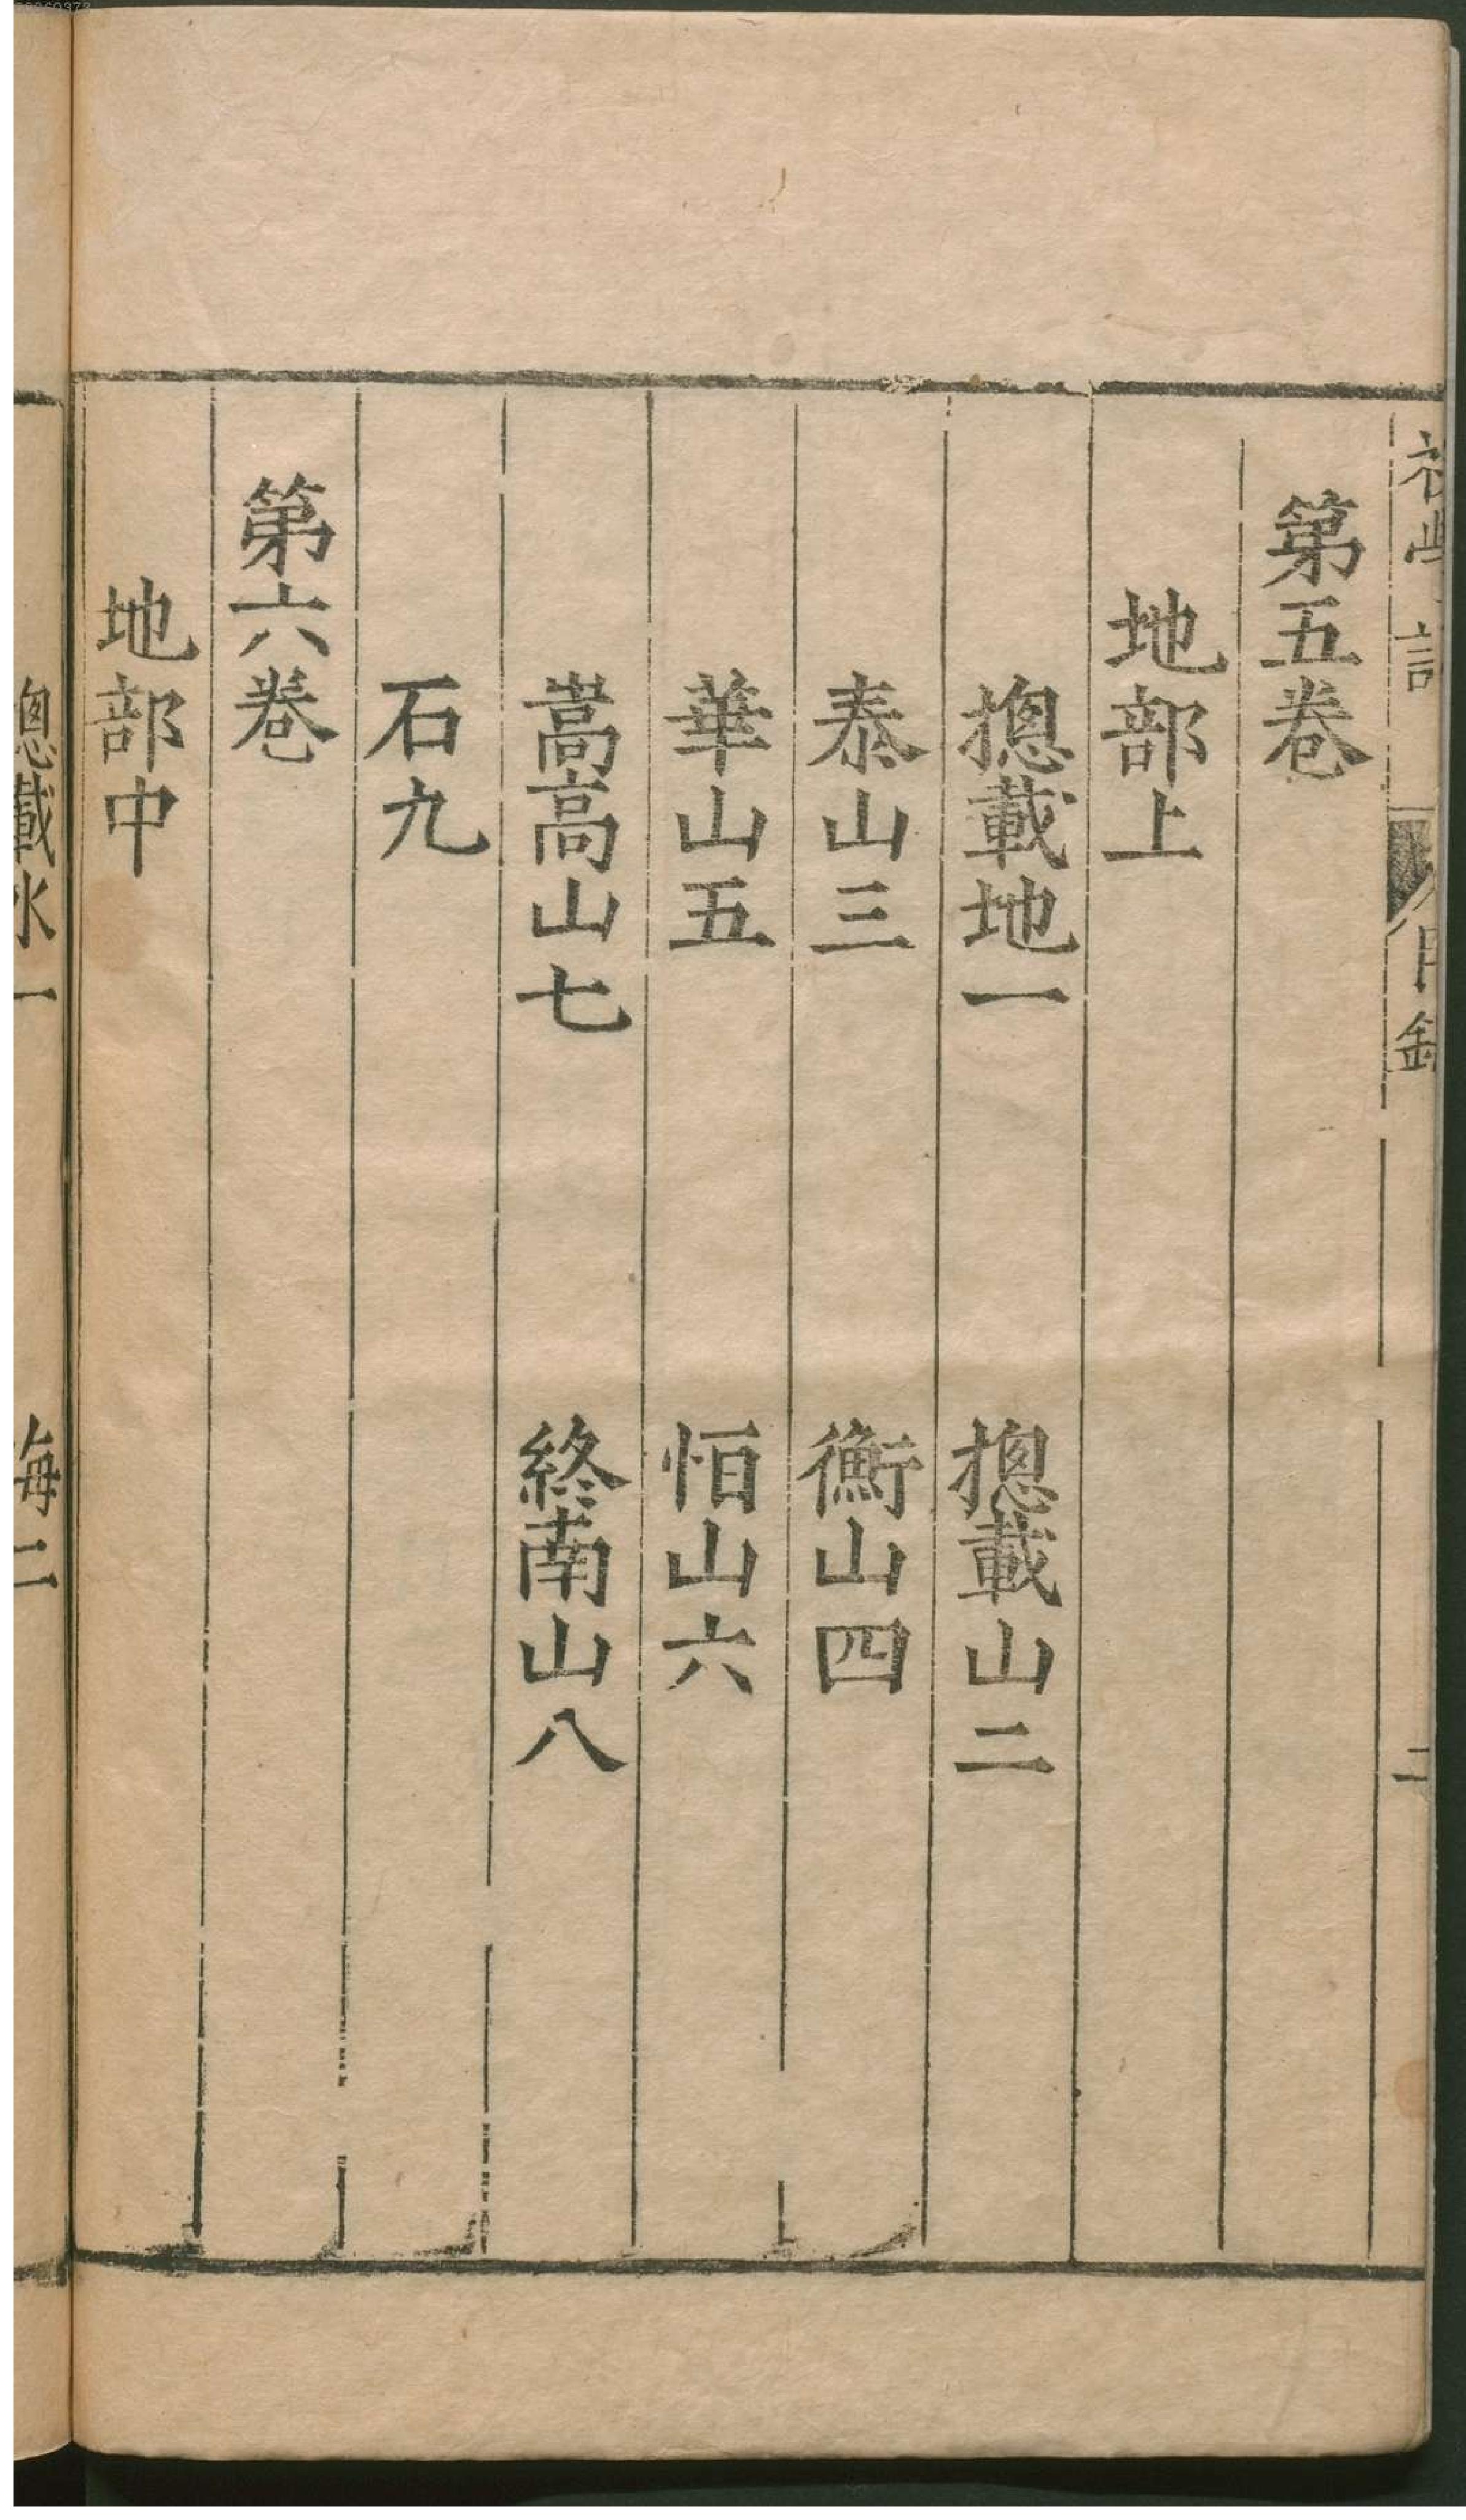 第五卷
地部上
摠載地一 摠載山二
泰山三 衡山四
華山五 恒山六
嵩高山七 終南山八
石九
第六卷
地部中
總載水一 海二